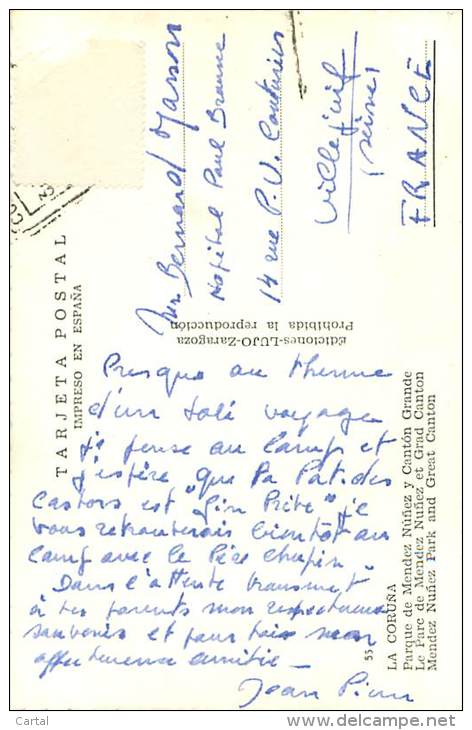 TARJETA POSTAL
IMPRESO EN ESPAÑA
Mr Bernard Masson
Hopital Paul Brousse
14 rue P. V. Couturier
Villejuif
(Seine)
FRANCE
Ediciones-LUJO-Zaragoza
Prohibida la reproducción
Presque au therme
d'un joli voyage
je pense au Camp et
j'espère que la Pat. des
Castors est "fin Prête" je
vous retrouverais bientôt au
Camp avec le Père Chupin
Dans l'attente transmet
à tes parents mon respectueux
souvenir et pour toi mon
affectueuse amitié —
Jean Pierre
55
LA CORUÑA
Parque de Mendez Núñez y Cantón Grande
Le Parc de Mendez Nuñez et Grad Canton
Mendez Nuñez Park and Great Canton
Cartal
http://www.delcampe.net